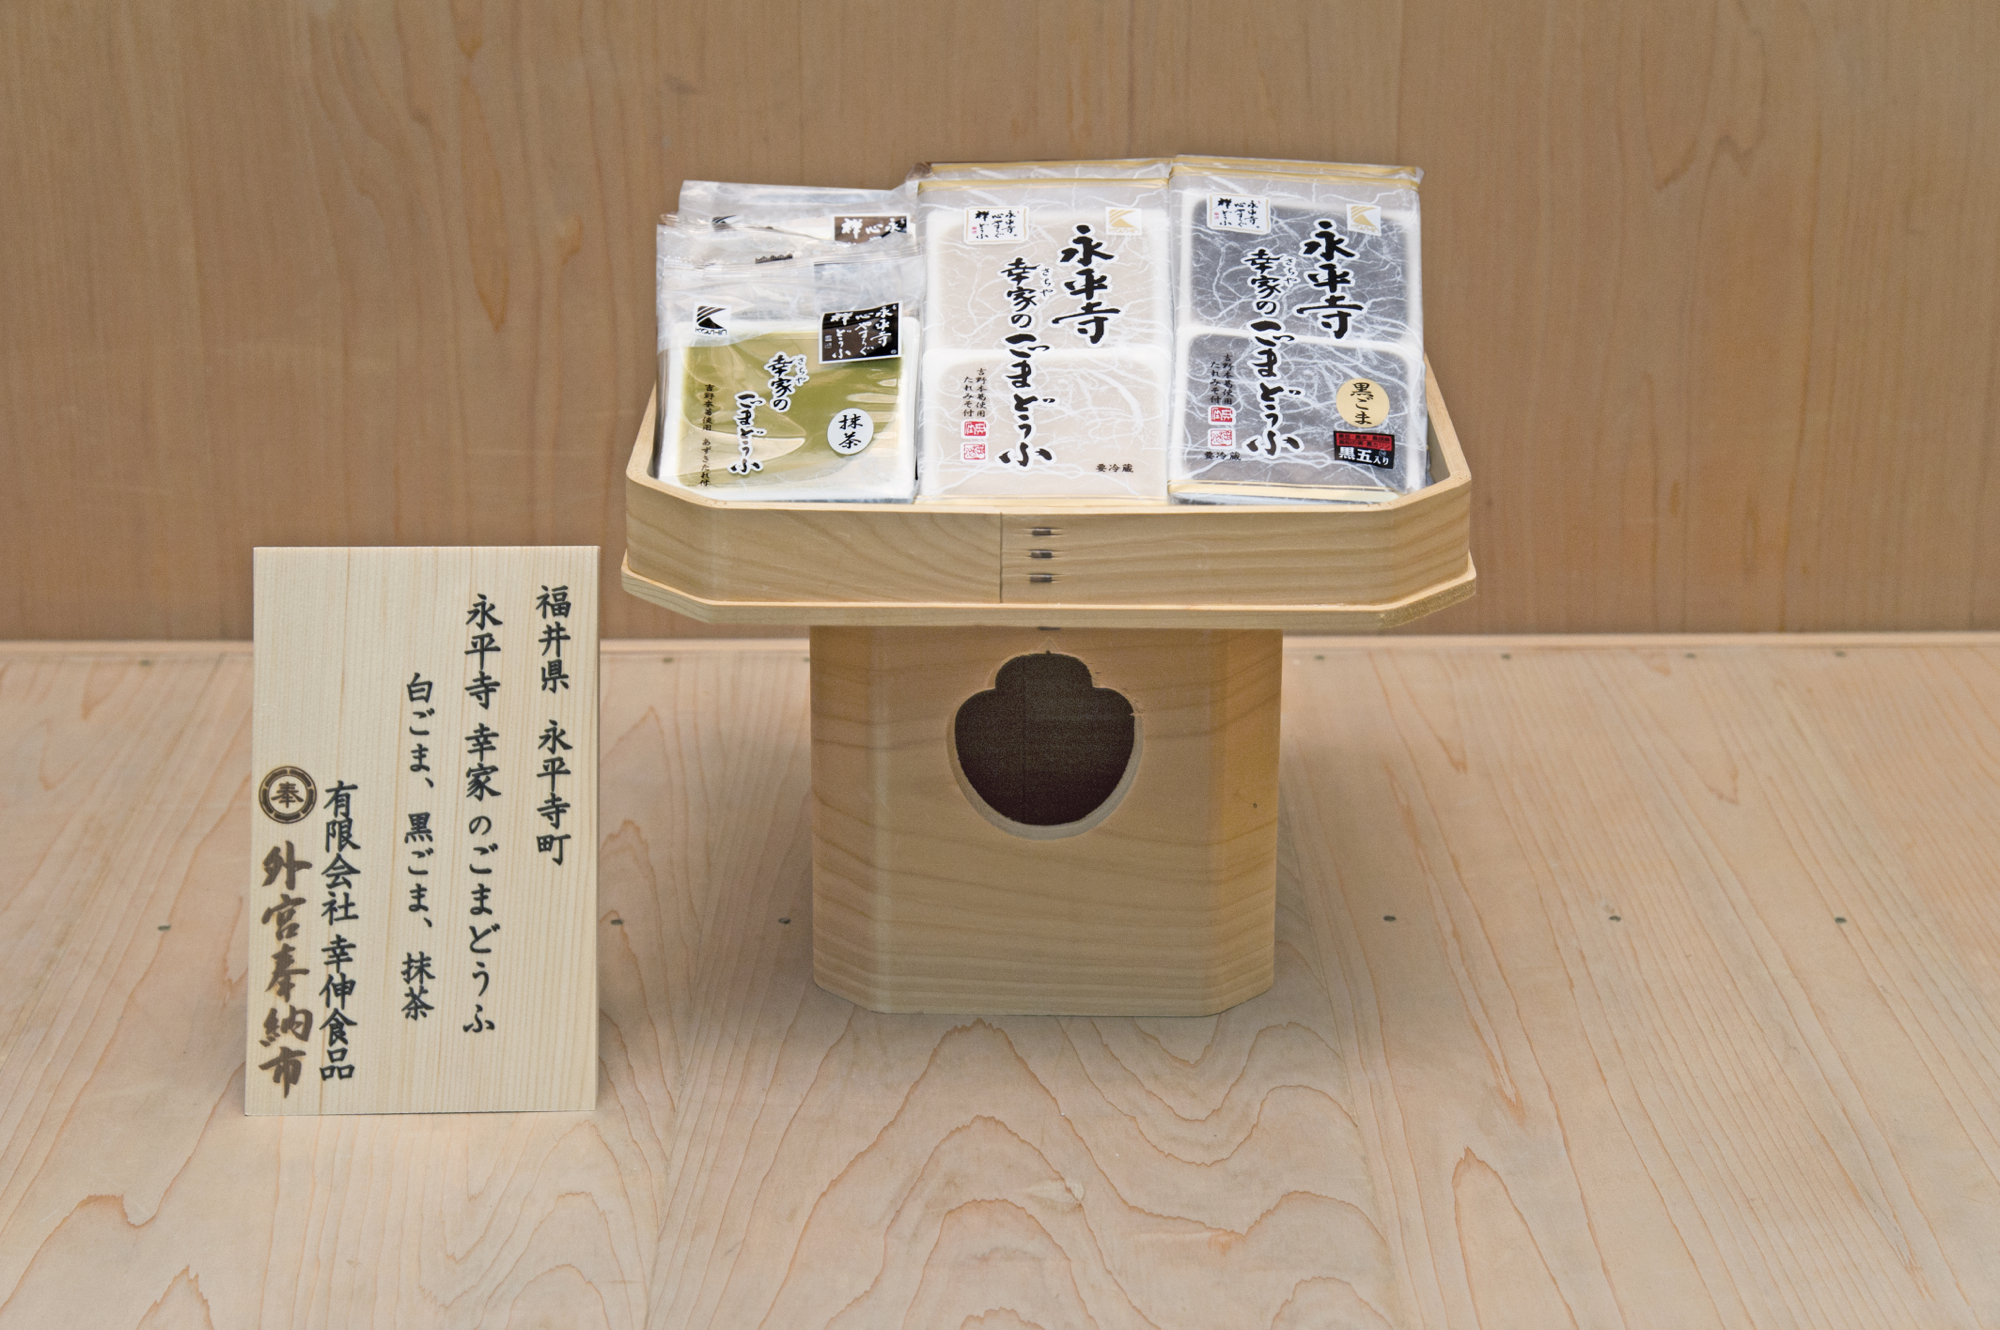 福井県 永平寺町
永平寺 幸家のごまどうふ
白ごま、黒ごま、抹茶
有限会社 幸伸食品
奉
外宮奉納市
永平寺
禅心やすらぐ
どうふ
幸家の
さちや
ごまどうふ
吉野本葛使用 あずきたれ付
抹茶
永平寺
幸家の
さちや
ごまどうふ
吉野本葛使用
たれみそ付
要冷蔵
永平寺
幸家の
さちや
ごまどうふ
吉野本葛使用
たれみそ付
要冷蔵
黒ごま
黒五入り